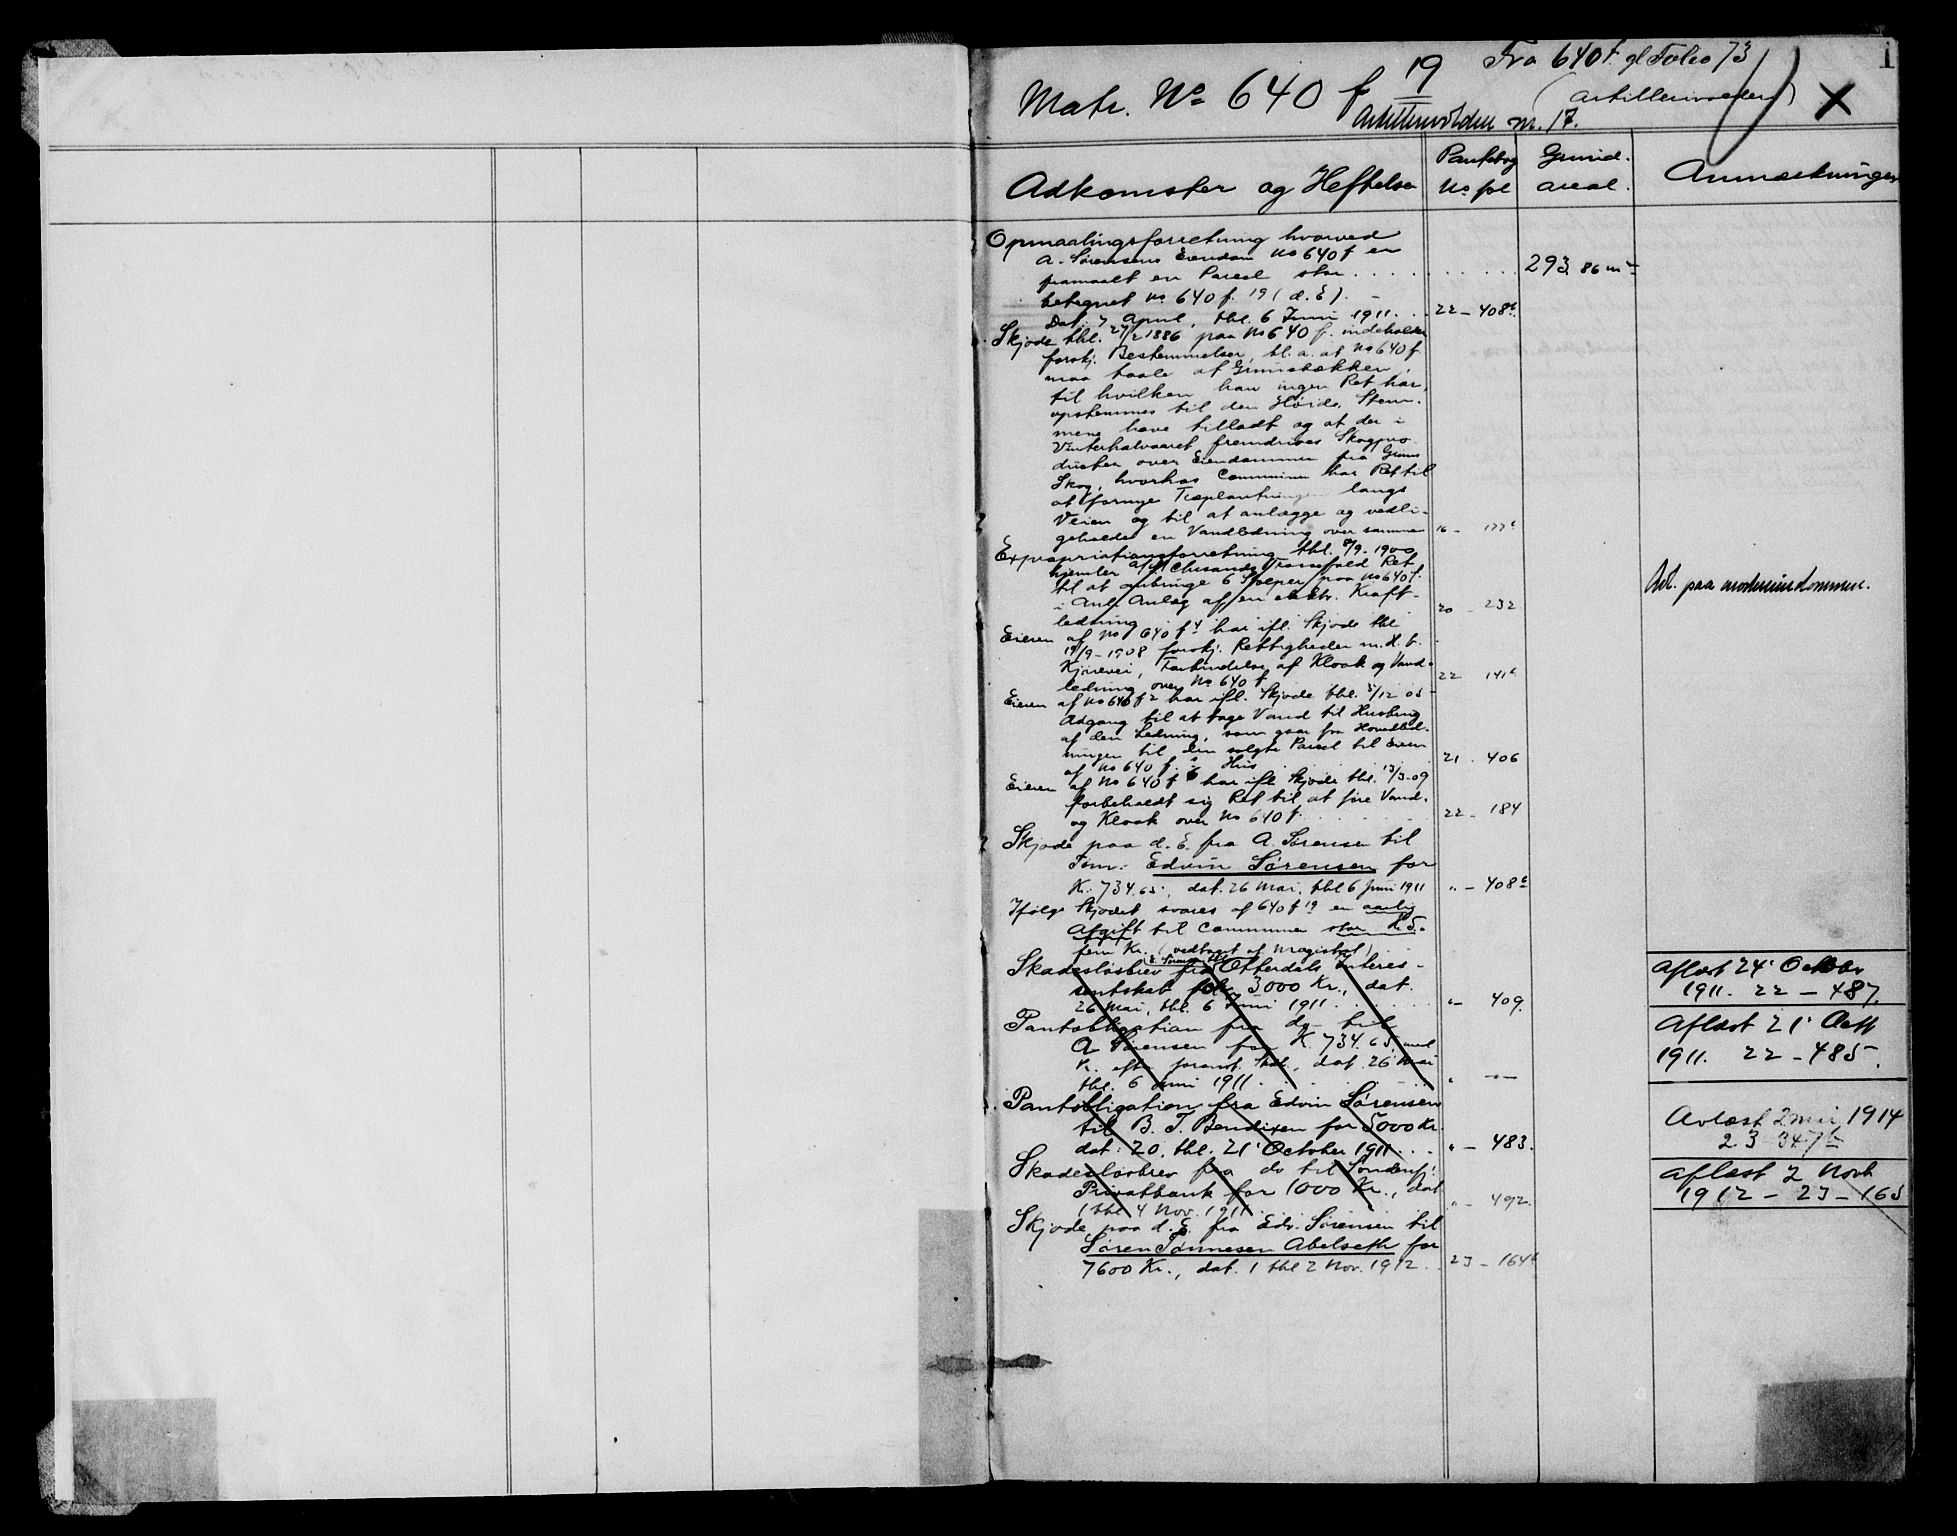 1
Fra 640 f. gl Folio 73
Matr. No 640 f 19
(Artillerivolden)
X
Artillerivolden nr. 17.
Adkomster og Heftelser
Pantebog No fol
Grund. areal.
Anmærkninger
Opmaalingsforretning hvorved
A. Sørensens Eiendom No 640 f er
framaalt en Parcel stor . . . . . . . . . 293,86 m²
betegnet No 640 f. 19 (d. E). –
Dat. 7 April, thl. 6 Juni 1911. . . 22 – 408b.
Skjøde thl. 27/2 1886 paa No 640 f. indeholder
forskj. Bestemmelser, bl. a. at No 640 f
maa taale at Grimsbækken,
til hvilken han ingen Ret har,
opstemmes til den Høide, Stem-
mene have tilladt og at der i
Vinterhalvaaret fremdrives Skogpro-
ducter over Eiendommen fra Grims
Skog, hvorhos Communen har Ret til
at fornye Træplantningen langs
Veien og til at anlægge og vedli-
geholde en Vandledning over samme 16 – 177b
Expropriationsforretning thl. 8/9-1900
hjemler A/S Chrsands Tømmefald Ret
til at anbringe 6 Stolper paa No 640 f.
i Anl. Anlæg af en elektr. Kraft-
ledning . . . 20 – 232
Anl. paa moderiendommen.
Eieren af No 640 f 4 har ifl. Skjøde thl
19/9-1908 forskj. Rettigheder m. H. t.
Kjørevei, Forbindelse af Kloak og Vand-
ledning over No 640 f 22 141b
Eieren af No 640 f 2 har ifl. Skjøde thl. 5/12 05
Adgang til at tage Vand til Husbrug
af den Ledning, som gaar fra Hovedled-
ningen til den solgte Parcel til Eieren
af No 640 f. s Hus . . . 21 . 406
Eieren af No 640 f 6 har ifl Skjøde thl. 13/3-09
forbeholdt sig Ret til at føre Vand-
og Kloak over No 640 f. . . . 22 – 184
Skjøde paa d. E. fra A. Sørensen til
Tøm. Edvin Sørensen for
Kr. 734.65, dat. 26 Mai, thl 6 Juni 1911 " – 408b
Ifølge Skjødet svares af 640 f 19 en aarlig
Afgift til Communen stor K 5.
fem Kr. (vedtaget af Magistrat)
E. Sørensen til
Skadesløsbrev fra Otterdals Interes-
sentskab for 3000 Kr., dat.
26 Mai, thl. 6 Juni 1911 . . . " – 409.
Aflæst 24' October
1911. 22 – 487.
Pantobligation fra do til
A Sørensen for K. 734.65, med
Pr. efter foranst. Hft., dat. 26 Mai
thl. 6 Juni 1911 . . . " – " –
Aflæst 21' Octb
1911. 22 – 485.
Pantobligation fra Edvin Sørensen
til B. T. Bendixen for 5000 Kr.
dat. 20. thl. 21' October 1911 . . . " – 483.
Avlæst 2 mai 1914
23 347b
Skadesløsbrev fra do til Sønderfj.
Privatbank for 1000 Kr., dat
1 thl 4 Nov. 1911 . . . " – 492.
Aflæst 2 Novb
1912 – 23 – 165
Skjøde paa d. E. fra Edv. Sørensen til
Søren Tønnesen Abelseth for
7600 Kr., dat. 1 thl 2 Nov. 1912 . 23 – 164b